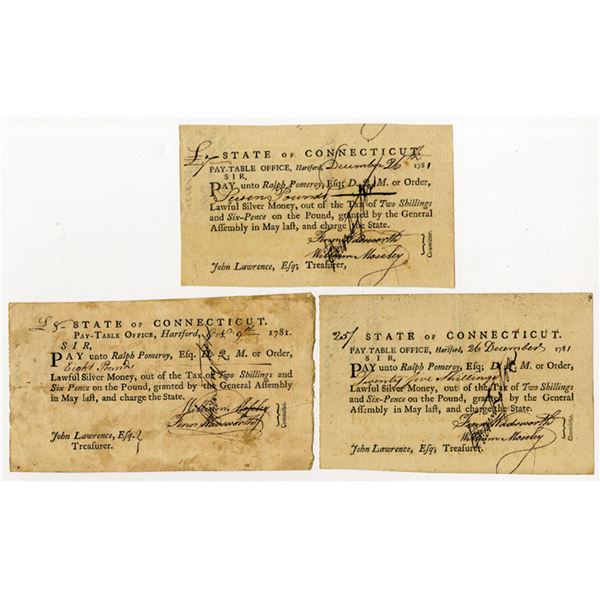 £7 STATE OF CONNECTICUT.
PAY-TABLE OFFICE, Hartford, December 26th 1781
SIR,
PAY unto Ralph Pomeroy, Esq; D. Q. M. or Order,
Seven Pounds
Lawful Silver Money, out of the Tax of Two Shillings
and Six-Pence on the Pound, granted by the General
Assembly in May last, and charge the State.
Fenn Wadsworth
William Moseley
Committee.
John Lawrence, Esq; Treasurer,
£8- STATE OF CONNECTICUT.
PAY-TABLE OFFICE, Hartford, 9th 1781.
SIR,
PAY unto Ralph Pomeroy, Esq. D. Q. M. or Order,
Eight Pounds
Lawful Silver Money, out of the Tax of Two Shillings and
Six-Pence on the Pound, granted by the General Assembly
in May last, and charge the State.
William Moseley
Fenn Wadsworth
Committee.
John Lawrence, Esq.
Treasurer.
25/ STATE OF CONNECTICUT.
PAY-TABLE OFFICE, Hartford, 26 December 1781
SIR,
PAY unto Ralph Pomeroy, Esq; D. Q. M. or Order,
Twenty five Shillings
Lawful Silver Money, out of the Tax of Two Shillings and
Six-Pence on the Pound, granted by the General Assembly
in May last, and charge the State.
Fenn Wadsworth
William Moseley
Committee.
John Lawrence, Esq; Treasurer.